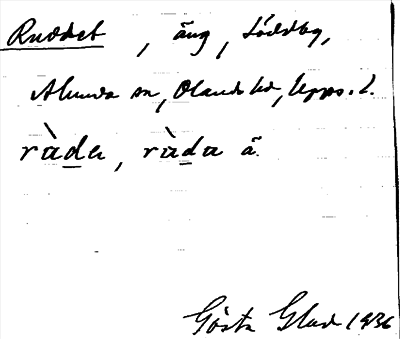 Ruddet, äng, Söddby,
Alunda sn, Olands hd, Upps. l.
ràda, ràda ä.
Gösta Glad 1936